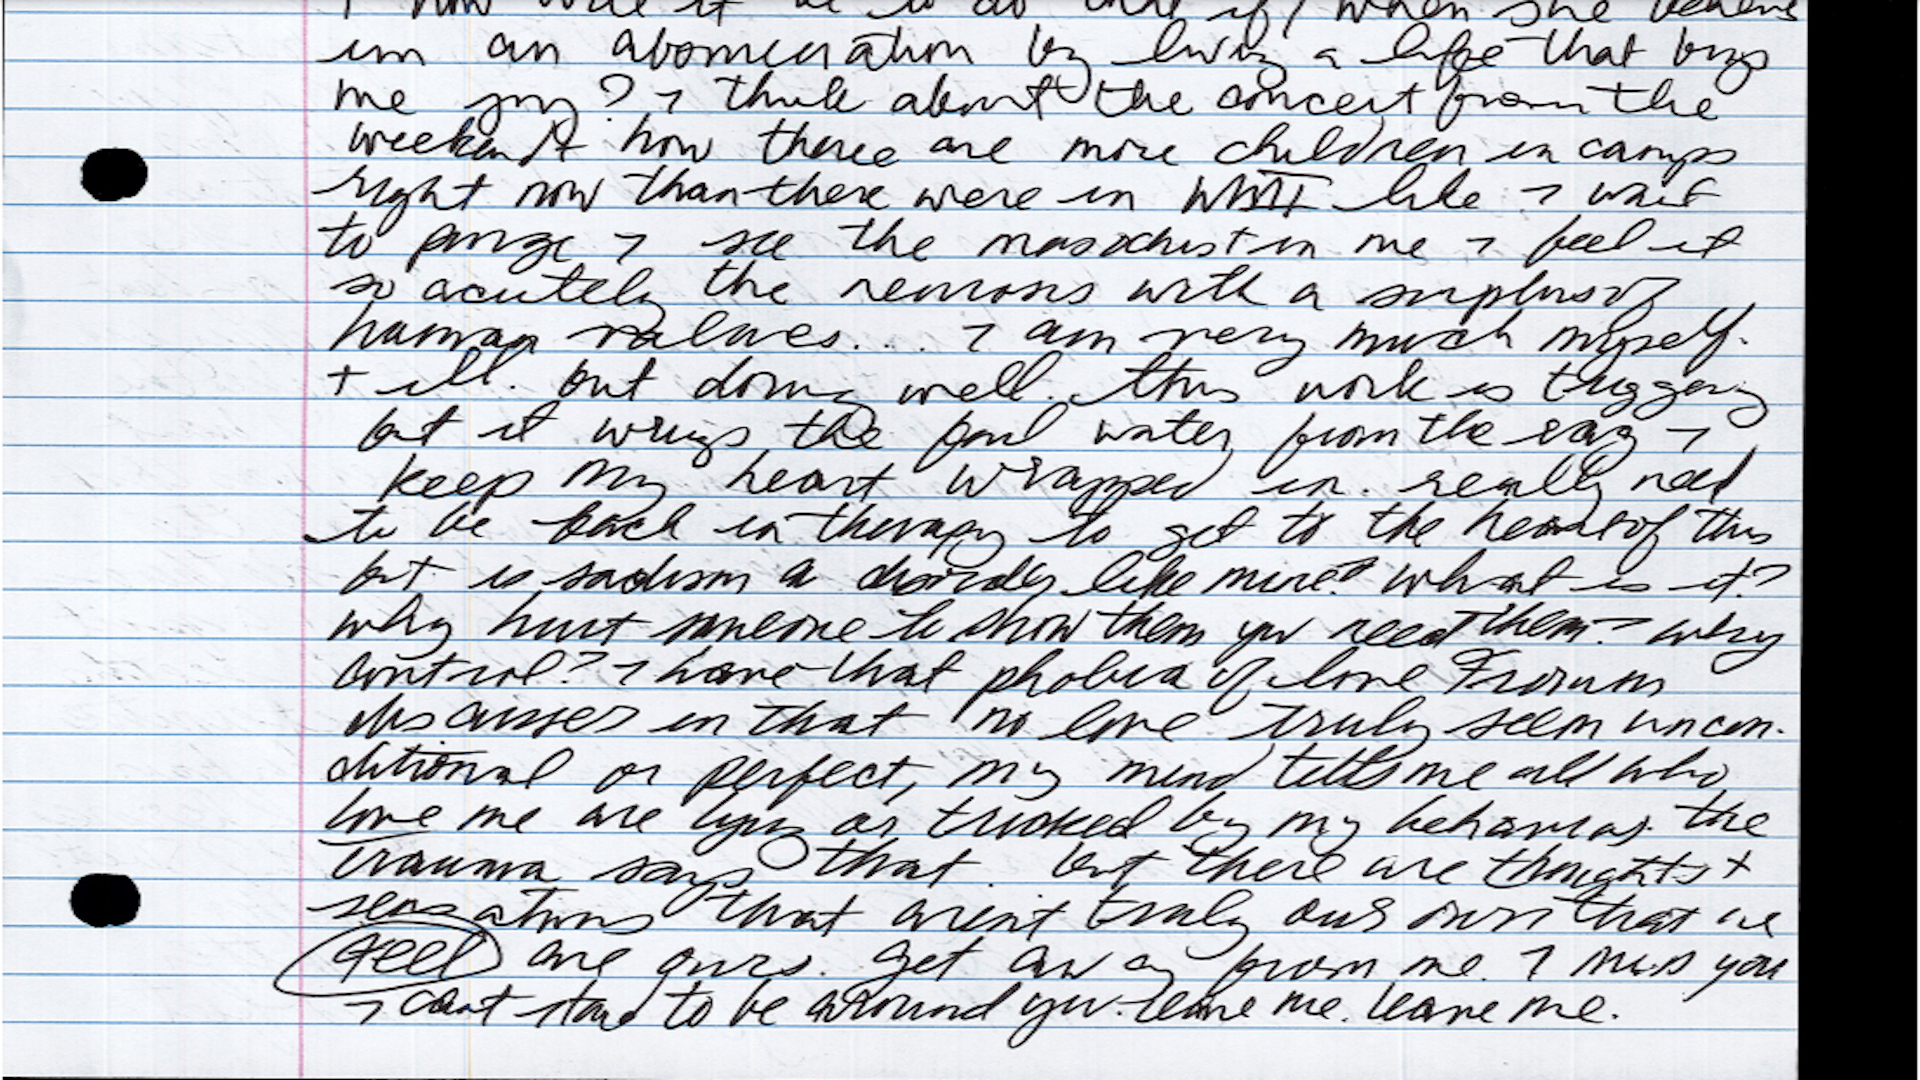 + how will it be to do that if/when she believes
im an abomination by living a life that brings
me joy? I think about the concert from the
weekend + how there are more children in camps
right now than there were in WWII like I want
to purge I see the masochist in me I feel it
so acutely the remorse with a surplus of
human values.... I am very much myself.
+ ill. but doing well. this work is triggering
but it wrings the foul water from the rag I
keep my heart wrapped in. really need
to be back in therapy to get to the heart of this
but is sadism a disorder like mine? what is it?
why hurt someone to show them you need them? why
control? I have that phobia of love Fromm
discusses in that no love truly seem uncon-
ditional or perfect, my mind tells me all who
love me are lying or tricked by my behaviors. the
trauma says that. but there are thoughts +
sensations that arent truly our own that we
feel are ours. get away from me. I miss you
I cant stand to be around you. leave me. leave me.